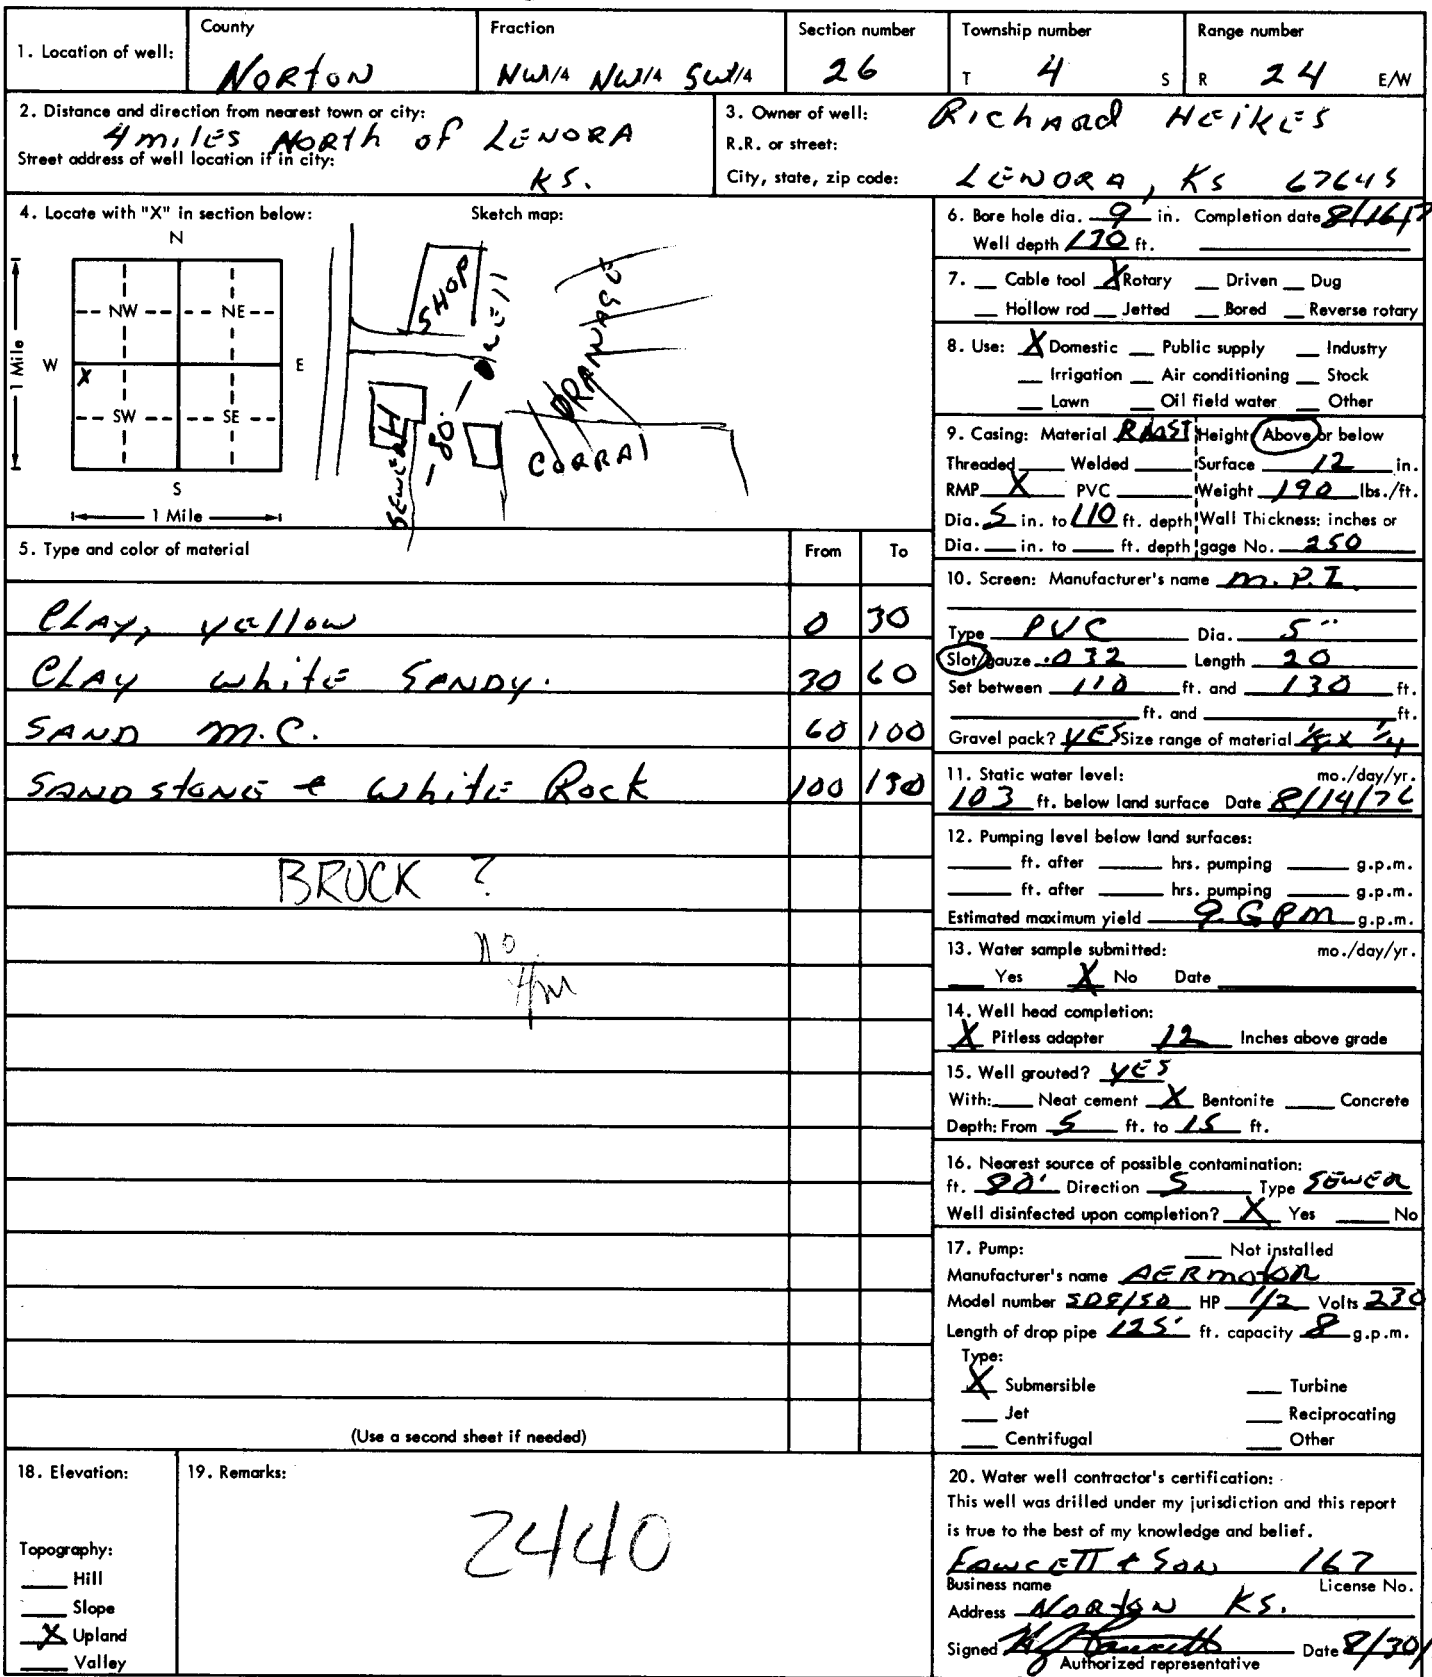 1. Location of well:
County
Norton
Fraction
NW1/4 NW1/4 SW1/4
Section number
26
Township number
T 4 S
Range number
R 24 E/W
2. Distance and direction from nearest town or city:
4 miles North of LENORA
Street address of well location if in city:
KS.
3. Owner of well: Richard Heikes
R.R. or street:
City, state, zip code: LENORA, KS 67645
4. Locate with "X" in section below:
Sketch map:
N
NW NE
W E
X
SW SE
S
1 Mile
1 Mile
SHOP
WELL
DRANAGE
80'
SEWER
CORRAl
5. Type and color of material From To
CLAY, yellow 0 30
CLAY white SANDY. 30 60
SAND M.C. 60 100
SANDSTONE & white Rock 100 130
BROCK ?
no
18. Elevation:
Topography:
Hill
Slope
X Upland
Valley
(Use a second sheet if needed)
19. Remarks:
2440
6. Bore hole dia. 9 in. Completion date 8/16/7
Well depth 130 ft.
7. Cable tool X Rotary Driven Dug
Hollow rod Jetted Bored Reverse rotary
8. Use: X Domestic Public supply Industry
Irrigation Air conditioning Stock
Lawn Oil field water Other
9. Casing: Material Height: Above or below
Threaded Welded Surface 12 in.
RMP X PVC Weight 190 lbs./ft.
Dia. 5 in. to 110 ft. depth Wall Thickness: inches or
Dia. in. to ft. depth gage No. 250
10. Screen: Manufacturer's name M.P.I.
Type PVC Dia. 5"
Slot/gauze .032 Length 20
Set between 110 ft. and 130 ft.
ft. and ft.
Gravel pack? YES Size range of material 1/8 x 1/4
11. Static water level: mo./day/yr.
103 ft. below land surface Date 8/14/76
12. Pumping level below land surfaces:
ft. after hrs. pumping g.p.m.
ft. after hrs. pumping g.p.m.
Estimated maximum yield 9 GPM g.p.m.
13. Water sample submitted: mo./day/yr.
Yes X No Date
14. Well head completion:
X Pitless adapter 12 Inches above grade
15. Well grouted? YES
With: Neat cement X Bentonite Concrete
Depth: From 5 ft. to 15 ft.
16. Nearest source of possible contamination:
ft. 80' Direction S Type SEWER
Well disinfected upon completion? X Yes No
17. Pump: Not installed
Manufacturer's name AERMOTOR
Model number HP 1/2 Volts 230
Length of drop pipe 125' ft. capacity 8 g.p.m.
Type:
X Submersible Turbine
Jet Reciprocating
Centrifugal Other
20. Water well contractor's certification:
This well was drilled under my jurisdiction and this report
is true to the best of my knowledge and belief.
FAWCETT & SON 167
Business name License No.
Address NORTON KS.
Signed Date 8/30/
Authorized representative